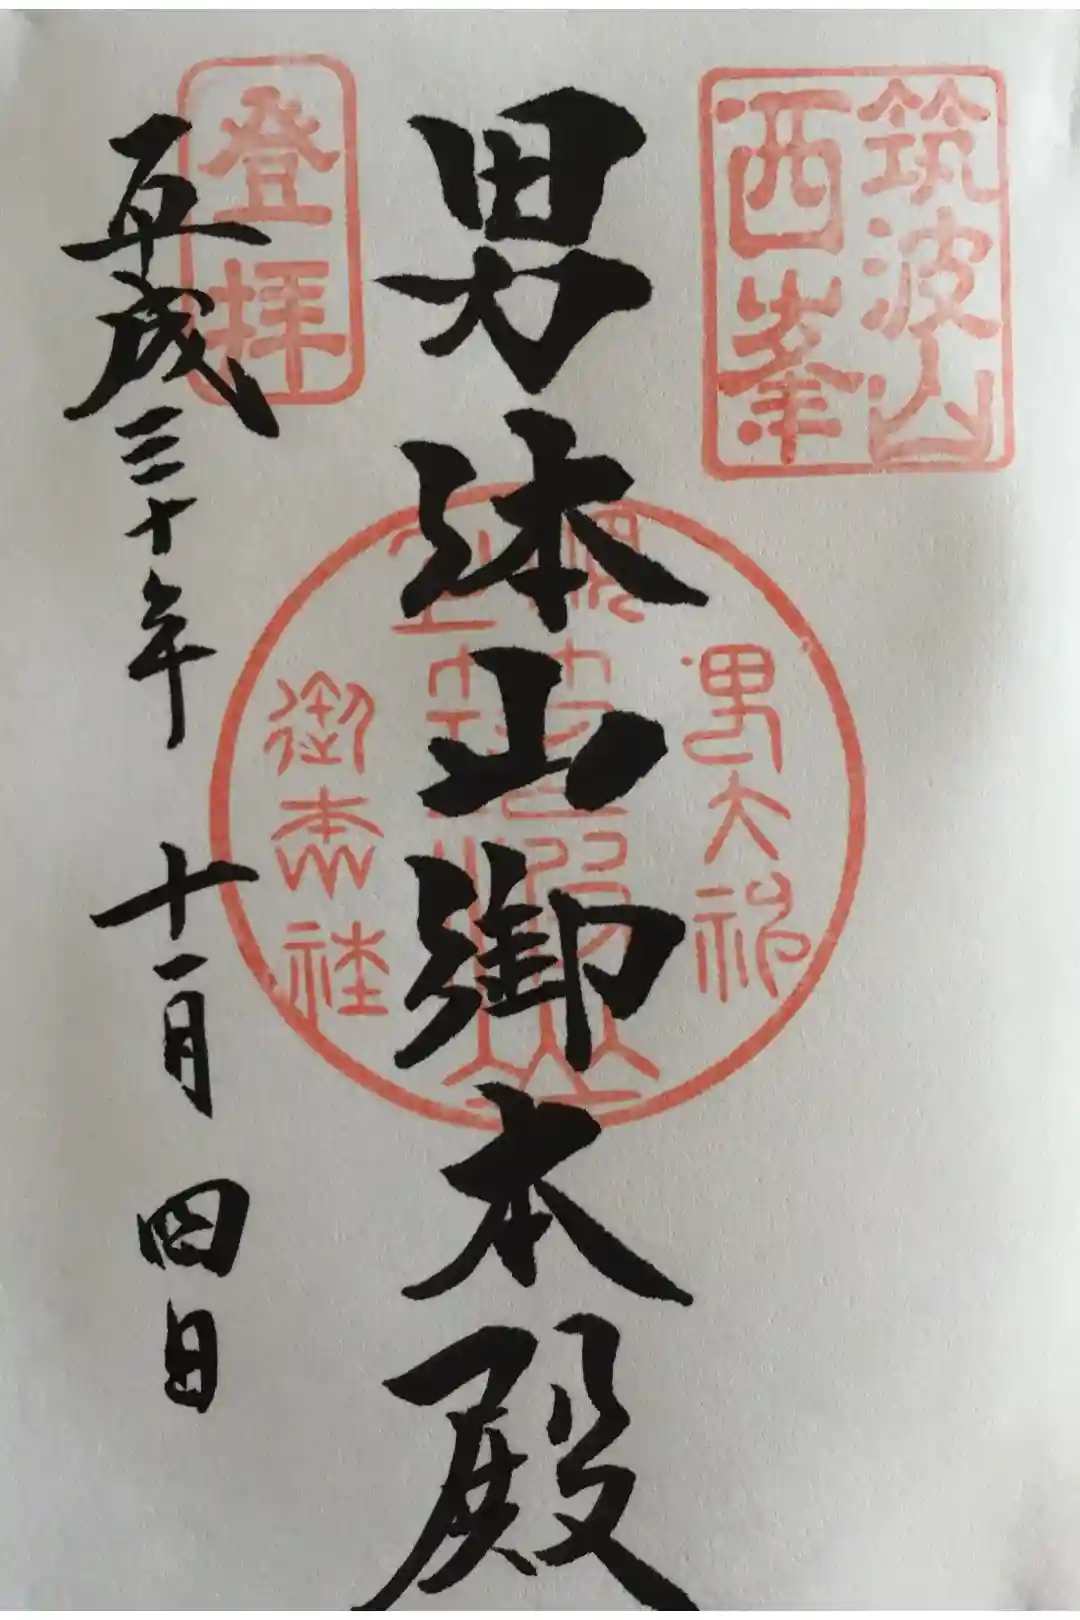 筑波山
西峯
男体山御本殿
男大神
御本社
登拝
平成三十年 十一月 四日